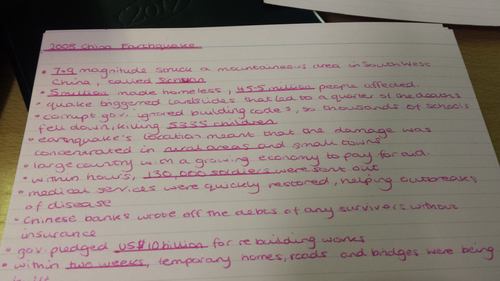 2017
2008 China Earthquake
• 7.9 magnitude struck a mountaineous area in southwest
China, called Sichuan
• 5 million made homeless, 45.5 million people affected
• quake triggered landslides that led to a quarter of the deaths
• corrupt gov. ignored building codes, so thousands of schools
fell down, killing 5335 children
• earthquake's location meant that the damage was
concentrated in rural areas and small towns
• large country with a growing economy to pay for aid.
• within hours, 130,000 soldiers were sent out
• medical services were quickly restored, helping outbreaks
of disease
• Chinese banks wrote off the debts of any survivors without
insurance
• gov. pledged US$10billion for rebuilding works
• within two weeks, temporary homes, roads and bridges were being